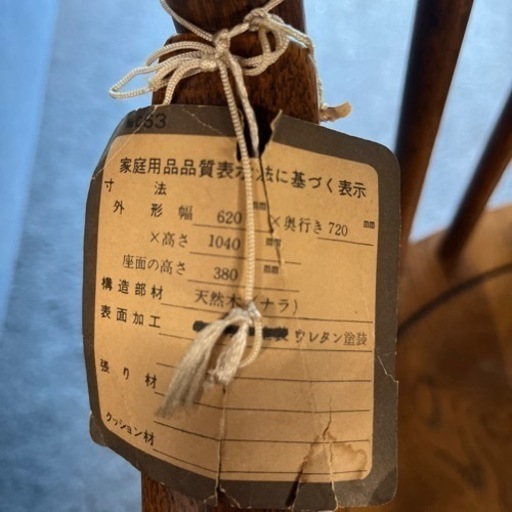 家庭用品品質表示法に基づく表示
寸法
外形 幅 620 mm × 奥行き 720 mm
×高さ 1040 mm
座面の高さ 380 mm
構造部材 天然木(ナラ)
表面加工 ウレタン塗装
張り材
クッション材